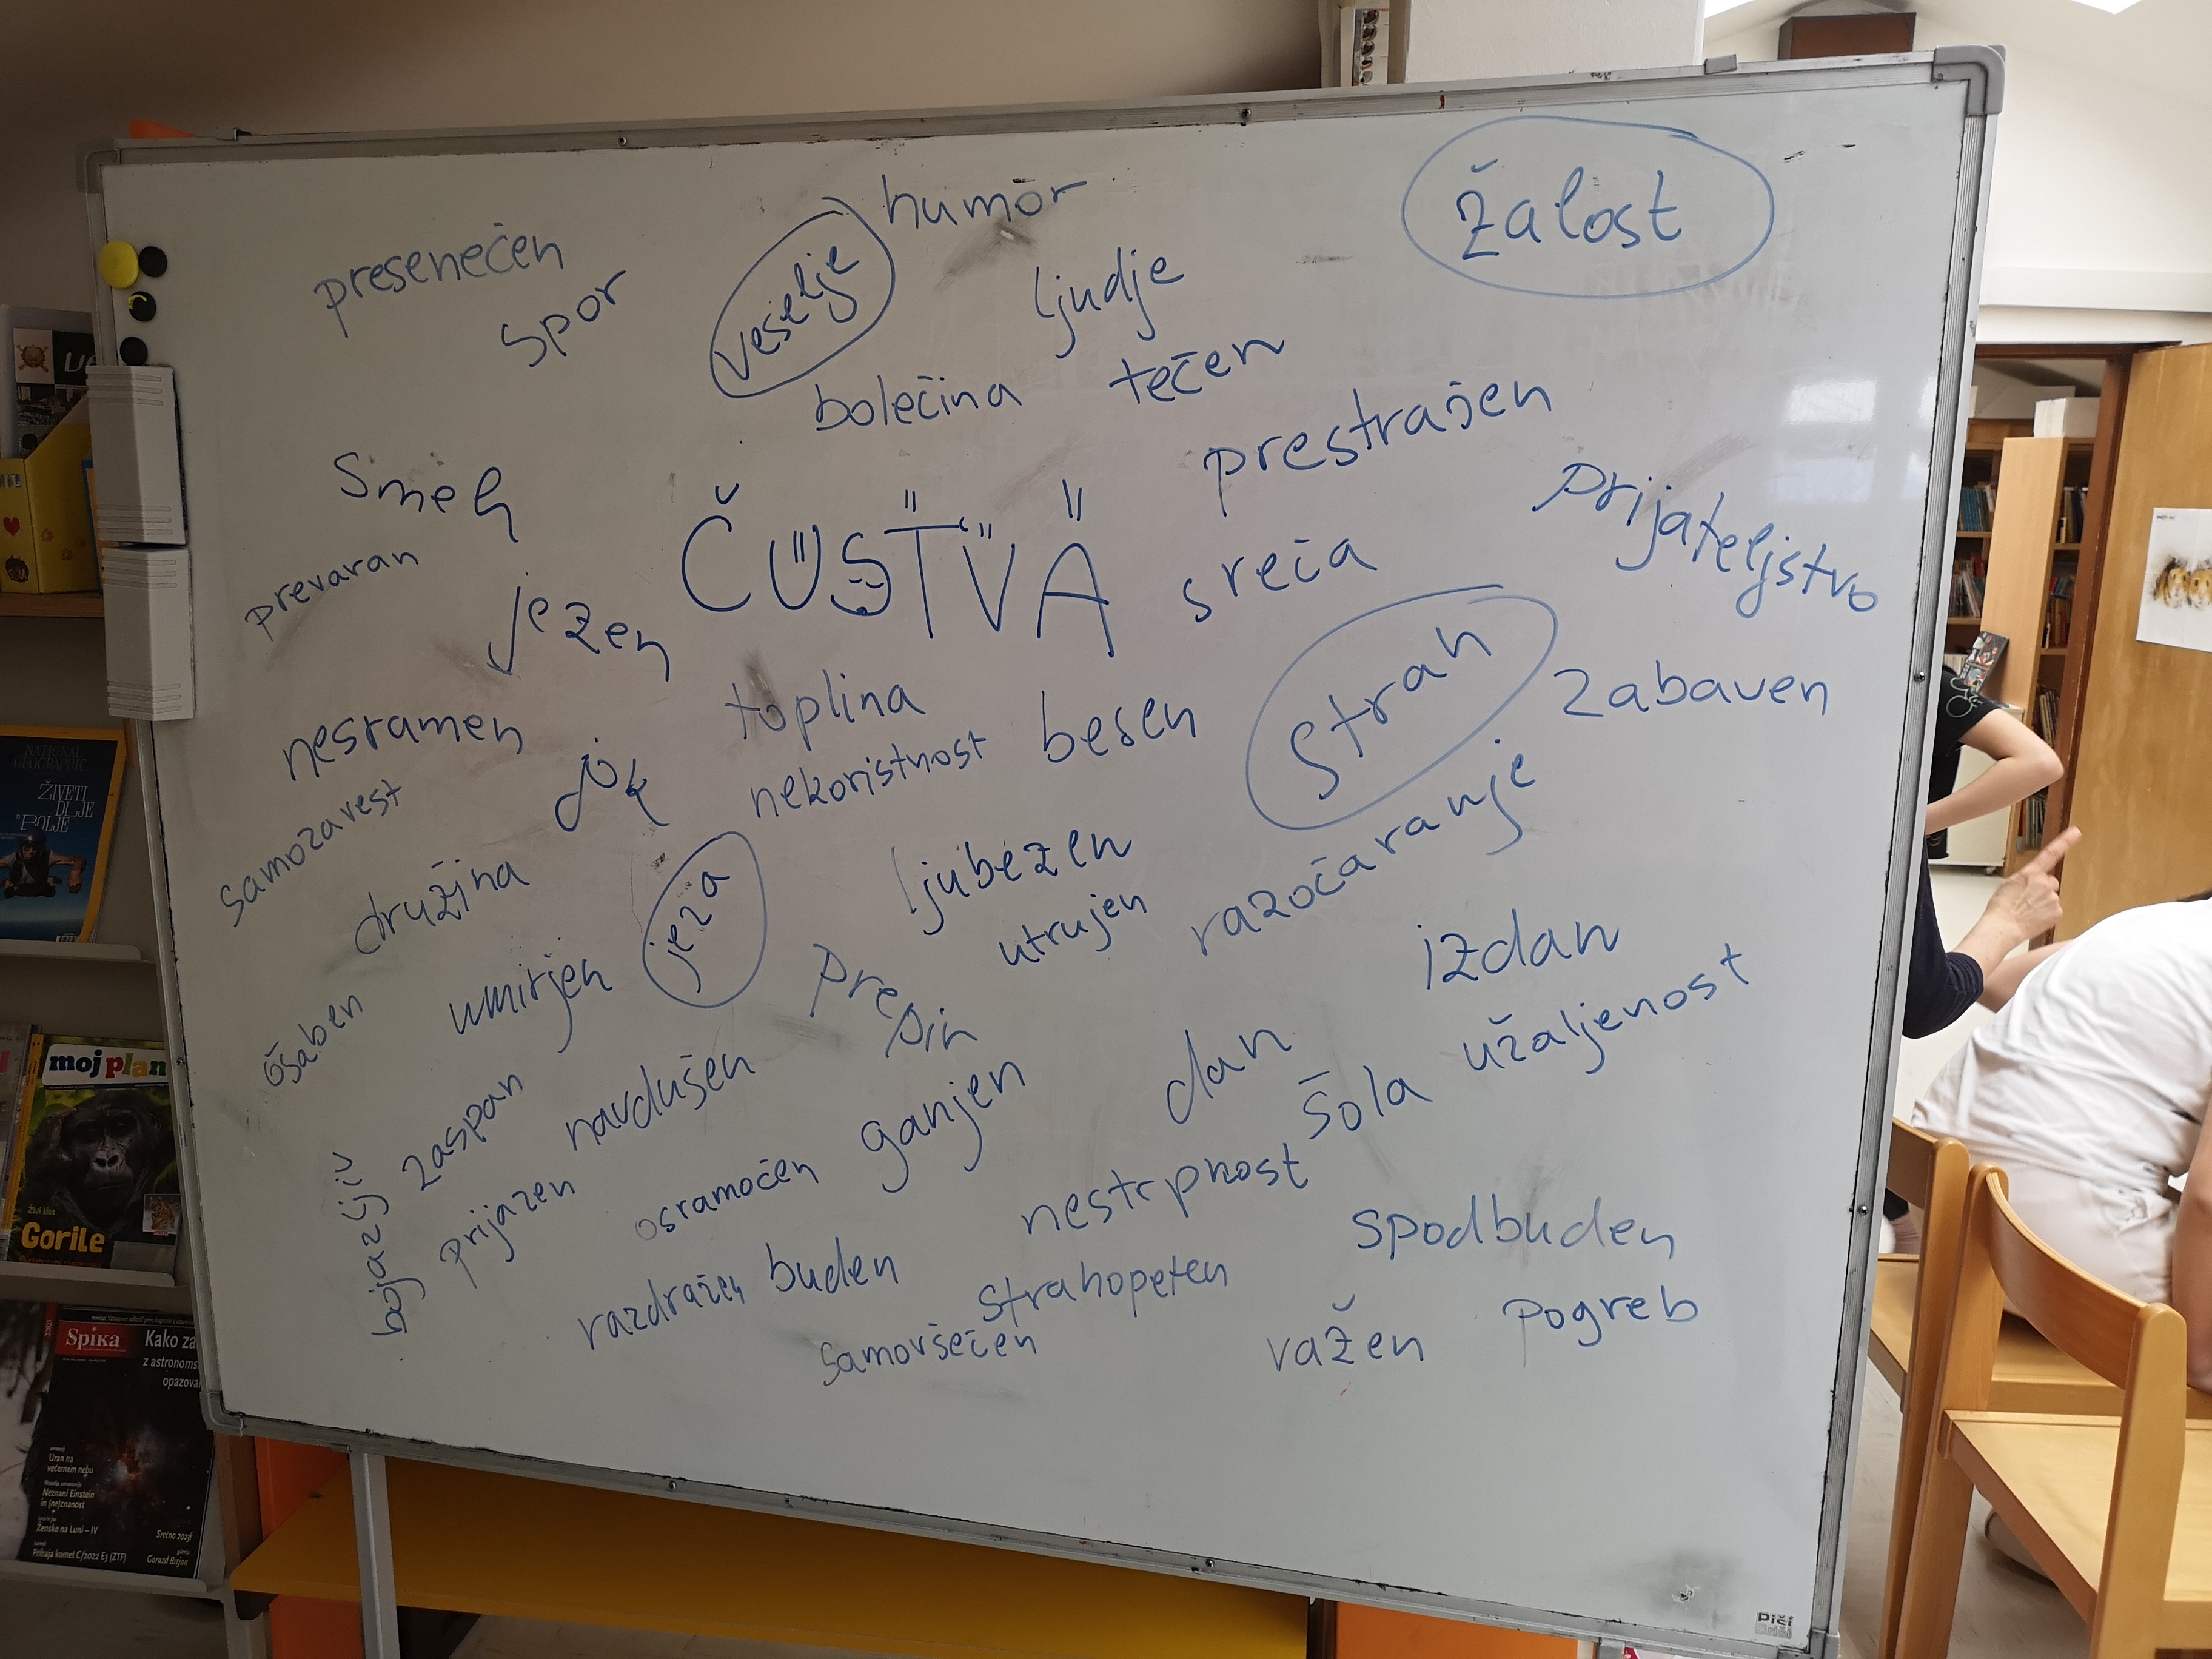 humor
žalost
presenečen
veselje
spor
ljudje
bolečina
tečen
prestrašen
smeh
ČUSTVA
prijateljstvo
prevaran
jezen
sreča
strah
toplina
besen
zabaven
nesramen
jok
nekoristnost
samozavest
družina
jeza
ljubezen
utrujen
razočaranje
izdan
umirjen
prepih
ošaben
dan
užaljenost
navdušen
šola
zaspan
ganjen
prijazen
osramočen
nestrpnost
spodbuden
razdražen
buden
strahopeten
samovšečen
važen
pogreb
NATIONAL
GEOGRAPHIC
ŽIVETI
DLJE
IN BOLJE
moj planet
Živi štos
Gorile
Spika
Kako za
z astronoms
opazova
Uran na
večernem nebu
Neznani Einstein
in (ne)znanost
Ženske na Luni – IV
Srečno 2023!
Prihaja komet C/2022 E3 (ZTF)
Gorazd Bizjan
Piši
Briši